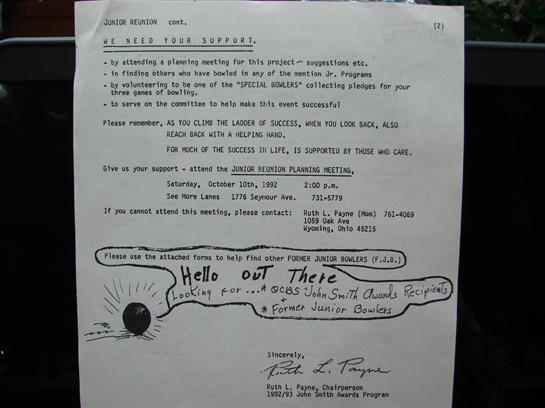 JUNIOR REUNION cont.
(2)
WE NEED YOUR SUPPORT.
- by attending a planning meeting for this project - suggestions etc.
- in finding others who have bowled in any of the mention Jr. Programs
- by volunteering to be one of the "SPECIAL BOWLERS" collecting pledges for your
three games of bowling.
- to serve on the committee to help make this event successful
Please remember, AS YOU CLIMB THE LADDER OF SUCCESS, WHEN YOU LOOK BACK, ALSO
REACH BACK WITH A HELPING HAND.
FOR MUCH OF THE SUCCESS IN LIFE, IS SUPPORTED BY THOSE WHO CARE.
Give us your support - attend the JUNIOR REUNION PLANNING MEETING,
Saturday, October 10th, 1992 2:00 p.m.
See More Lanes 1776 Seymour Ave. 731-5779
If you cannot attend this meeting, please contact: Ruth L. Payne (Mom) 761-4069
1059 Oak Ave
Wyoming, Ohio 45215
Please use the attached forms to help find other FORMER JUNIOR BOWLERS (F.J.B.)
Hello out There
Looking for ...* QCBS John Smith Awards Recipients
+
* Former Junior Bowlers
Sincerely,
Ruth L. Payne
Ruth L. Payne, Chairperson
1992/93 John Smith Awards Program